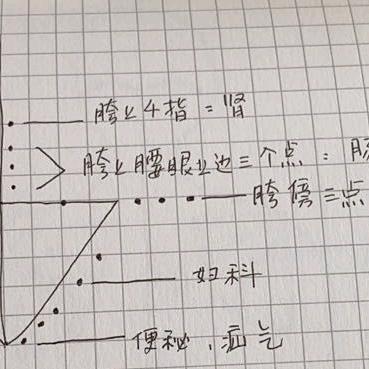 胯上4指:肾
胯上腰眼上边三个点:
胯傍三点
妇科
便秘、疝气